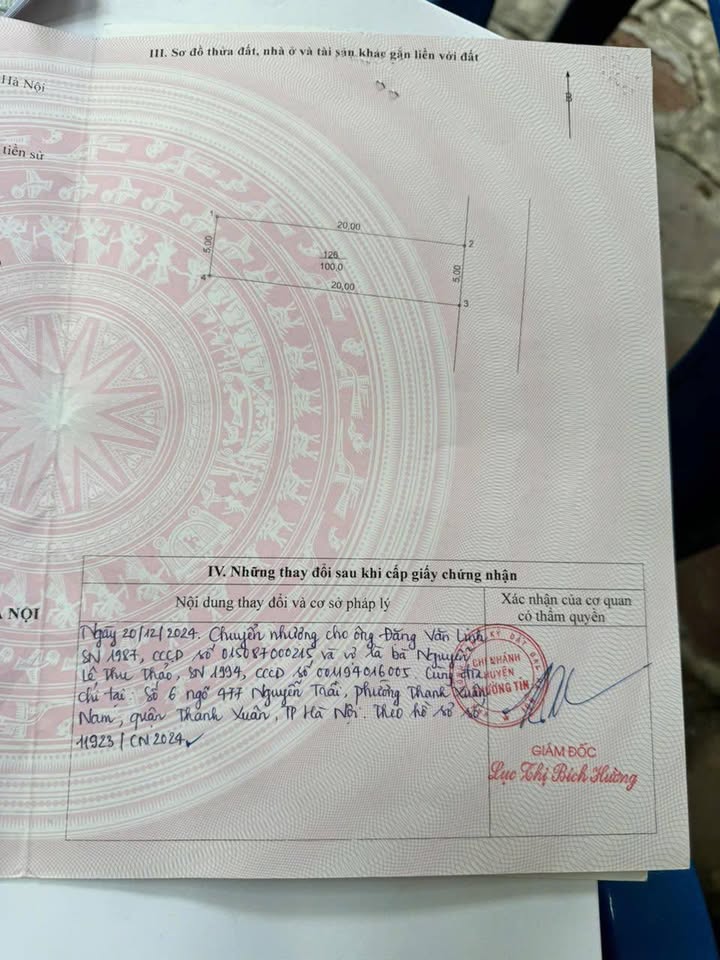 III. Sơ đồ thửa đất, nhà ở và tài sản khác gắn liền với đất
Hà Nội
B
tiền sử
1
20,00
2
5,00
126
100,0
5,00
4
20,00
3
NỘI
IV. Những thay đổi sau khi cấp giấy chứng nhận
Nội dung thay đổi và cơ sở pháp lý
Xác nhận của cơ quan
có thẩm quyền
Ngày 20/12/2024. Chuyển nhượng cho ông Đặng Văn Linh
SN 1987, CCCD số 015087000215 và vợ là bà Nguyễn
Lê Thu Thảo, SN 1994, CCCD số 001194016005 Cùng địa
chỉ tại: Số 6 ngõ 477 Nguyễn Trãi, phường Thanh Xuân
Nam, quận Thanh Xuân, TP Hà Nội. Theo hồ sơ số
11923/CN2024
CHI NHÁNH
HUYỆN
THƯỜNG TÍN
GIÁM ĐỐC
Lục Thị Bích Hường